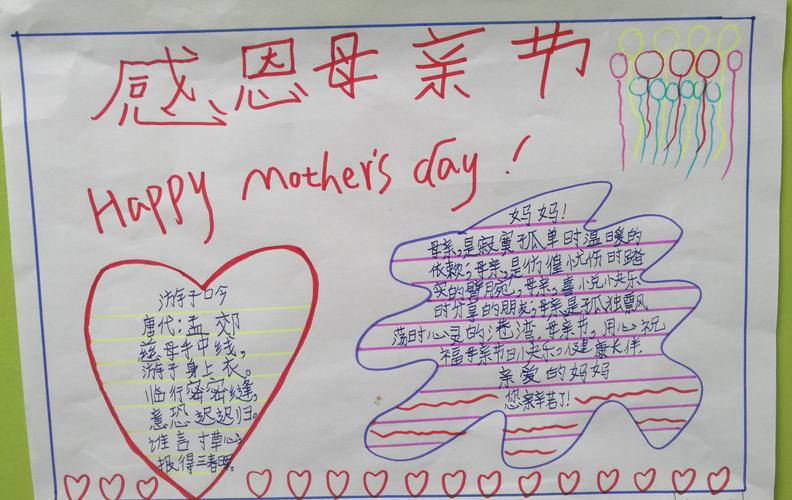 感恩母亲节
Happy mother's day!
游子吟
唐代:孟郊
慈母手中线,
游子身上衣。
临行密密缝,
意恐迟迟归。
谁言寸草心,
报得三春晖。
妈妈!
母亲,是寂寞孤单时温暖的
依赖,母亲,是彷徨忧伤时踏
实的臂腕,母亲,喜悦快乐
时分享的朋友,母亲是孤独飘
荡时心灵的港湾,母亲节,用心祝
福母亲节日快乐,健康长伴.
亲爱的妈妈
您亲辛苦了!